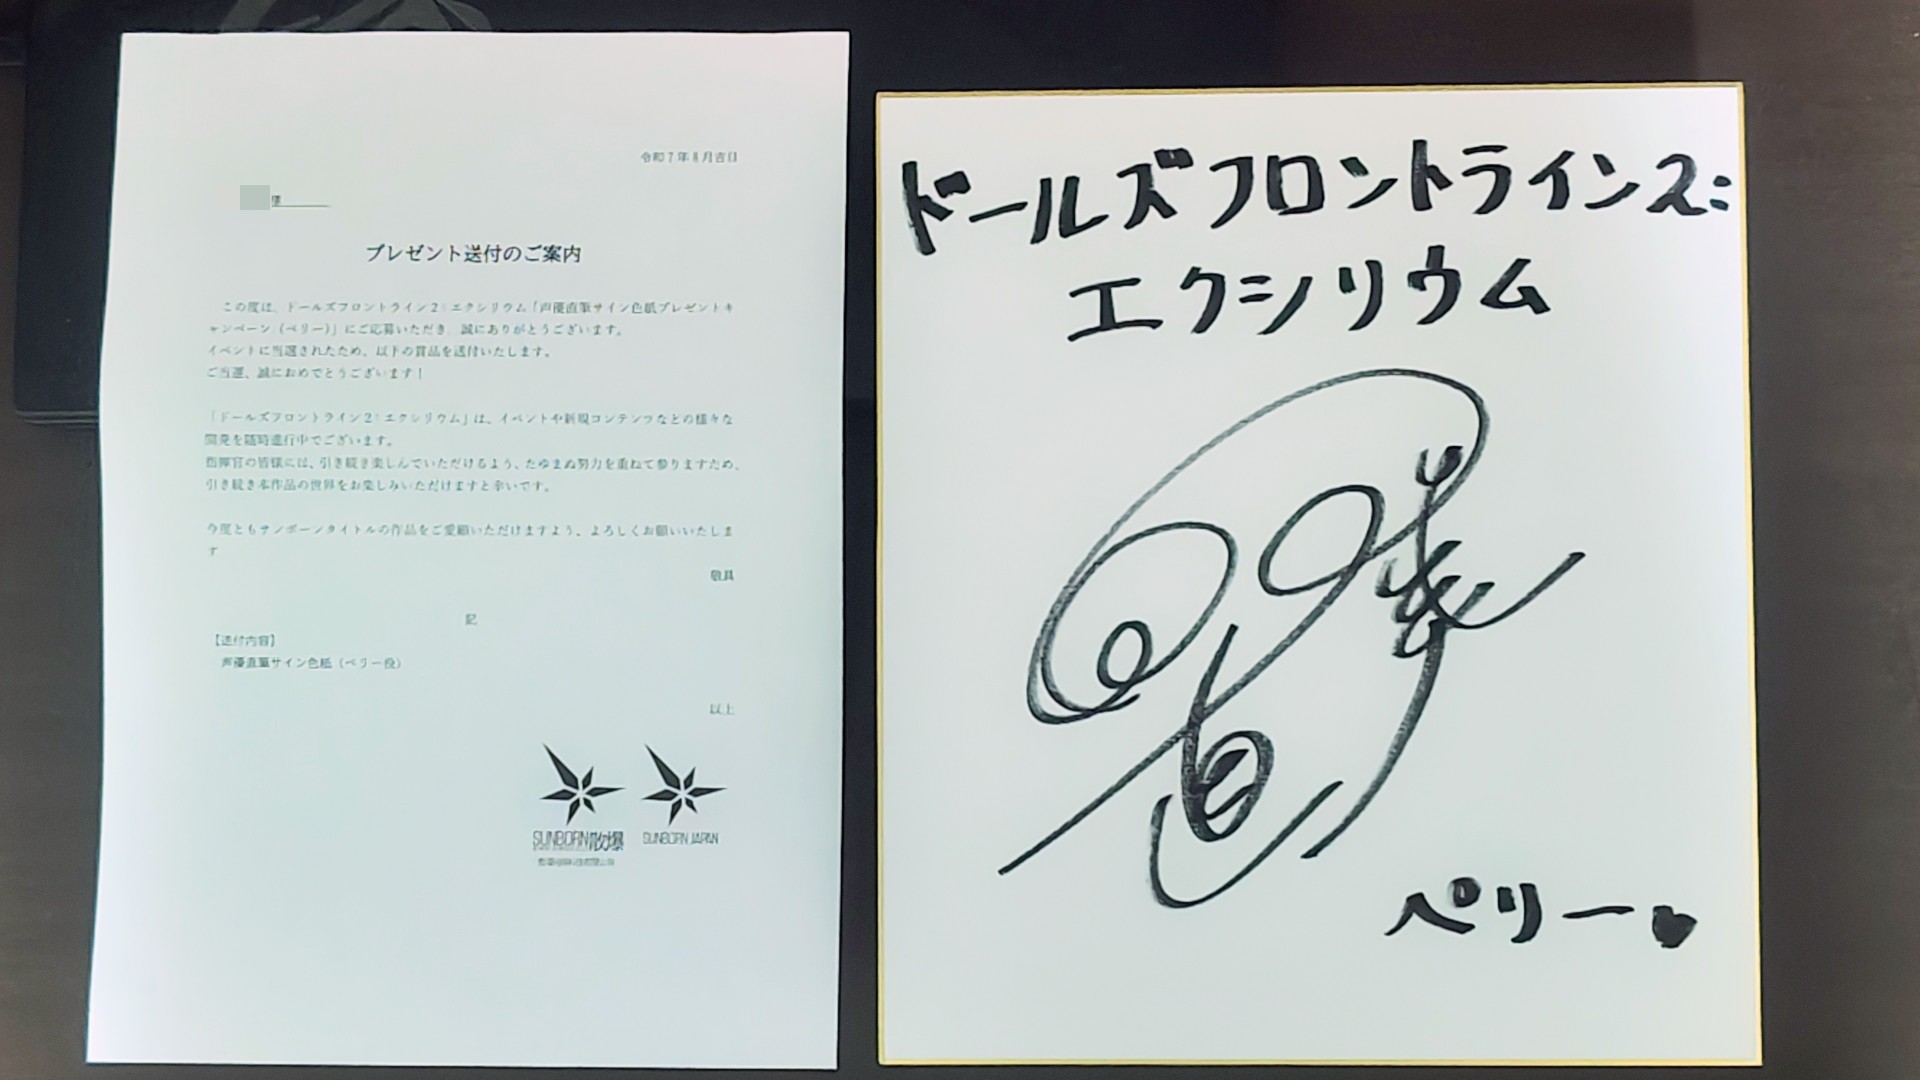 令和7年8月吉日
様
プレゼント送付のご案内
この度は、ドールズフロントライン2:エクシリウム「声優直筆サイン色紙プレゼントキ
ャンペーン(ペリー)」にご応募いただき、誠にありがとうございます。
イベントに当選されたため、以下の賞品を送付いたします。
ご当選、誠におめでとうございます!
「ドールズフロントライン2:エクシリウム」は、イベントや新規コンテンツなどの様々な
開発を随時進行中でございます。
指揮官の皆様には、引き続き楽しんでいただけるよう、たゆまぬ努力を重ねて参りますため、
引き続き本作品の世界をお楽しみいただけますと幸いです。
今度ともサンボーンタイトルの作品をご愛顧いただけますよう、よろしくお願いいたしま
す
敬具
記
【送付内容】
声優直筆サイン色紙(ペリー役)
以上
SUNBORN散爆
SUNBORN JAPAN
ドールズフロントライン2:
エクシリウム
ペリー♥